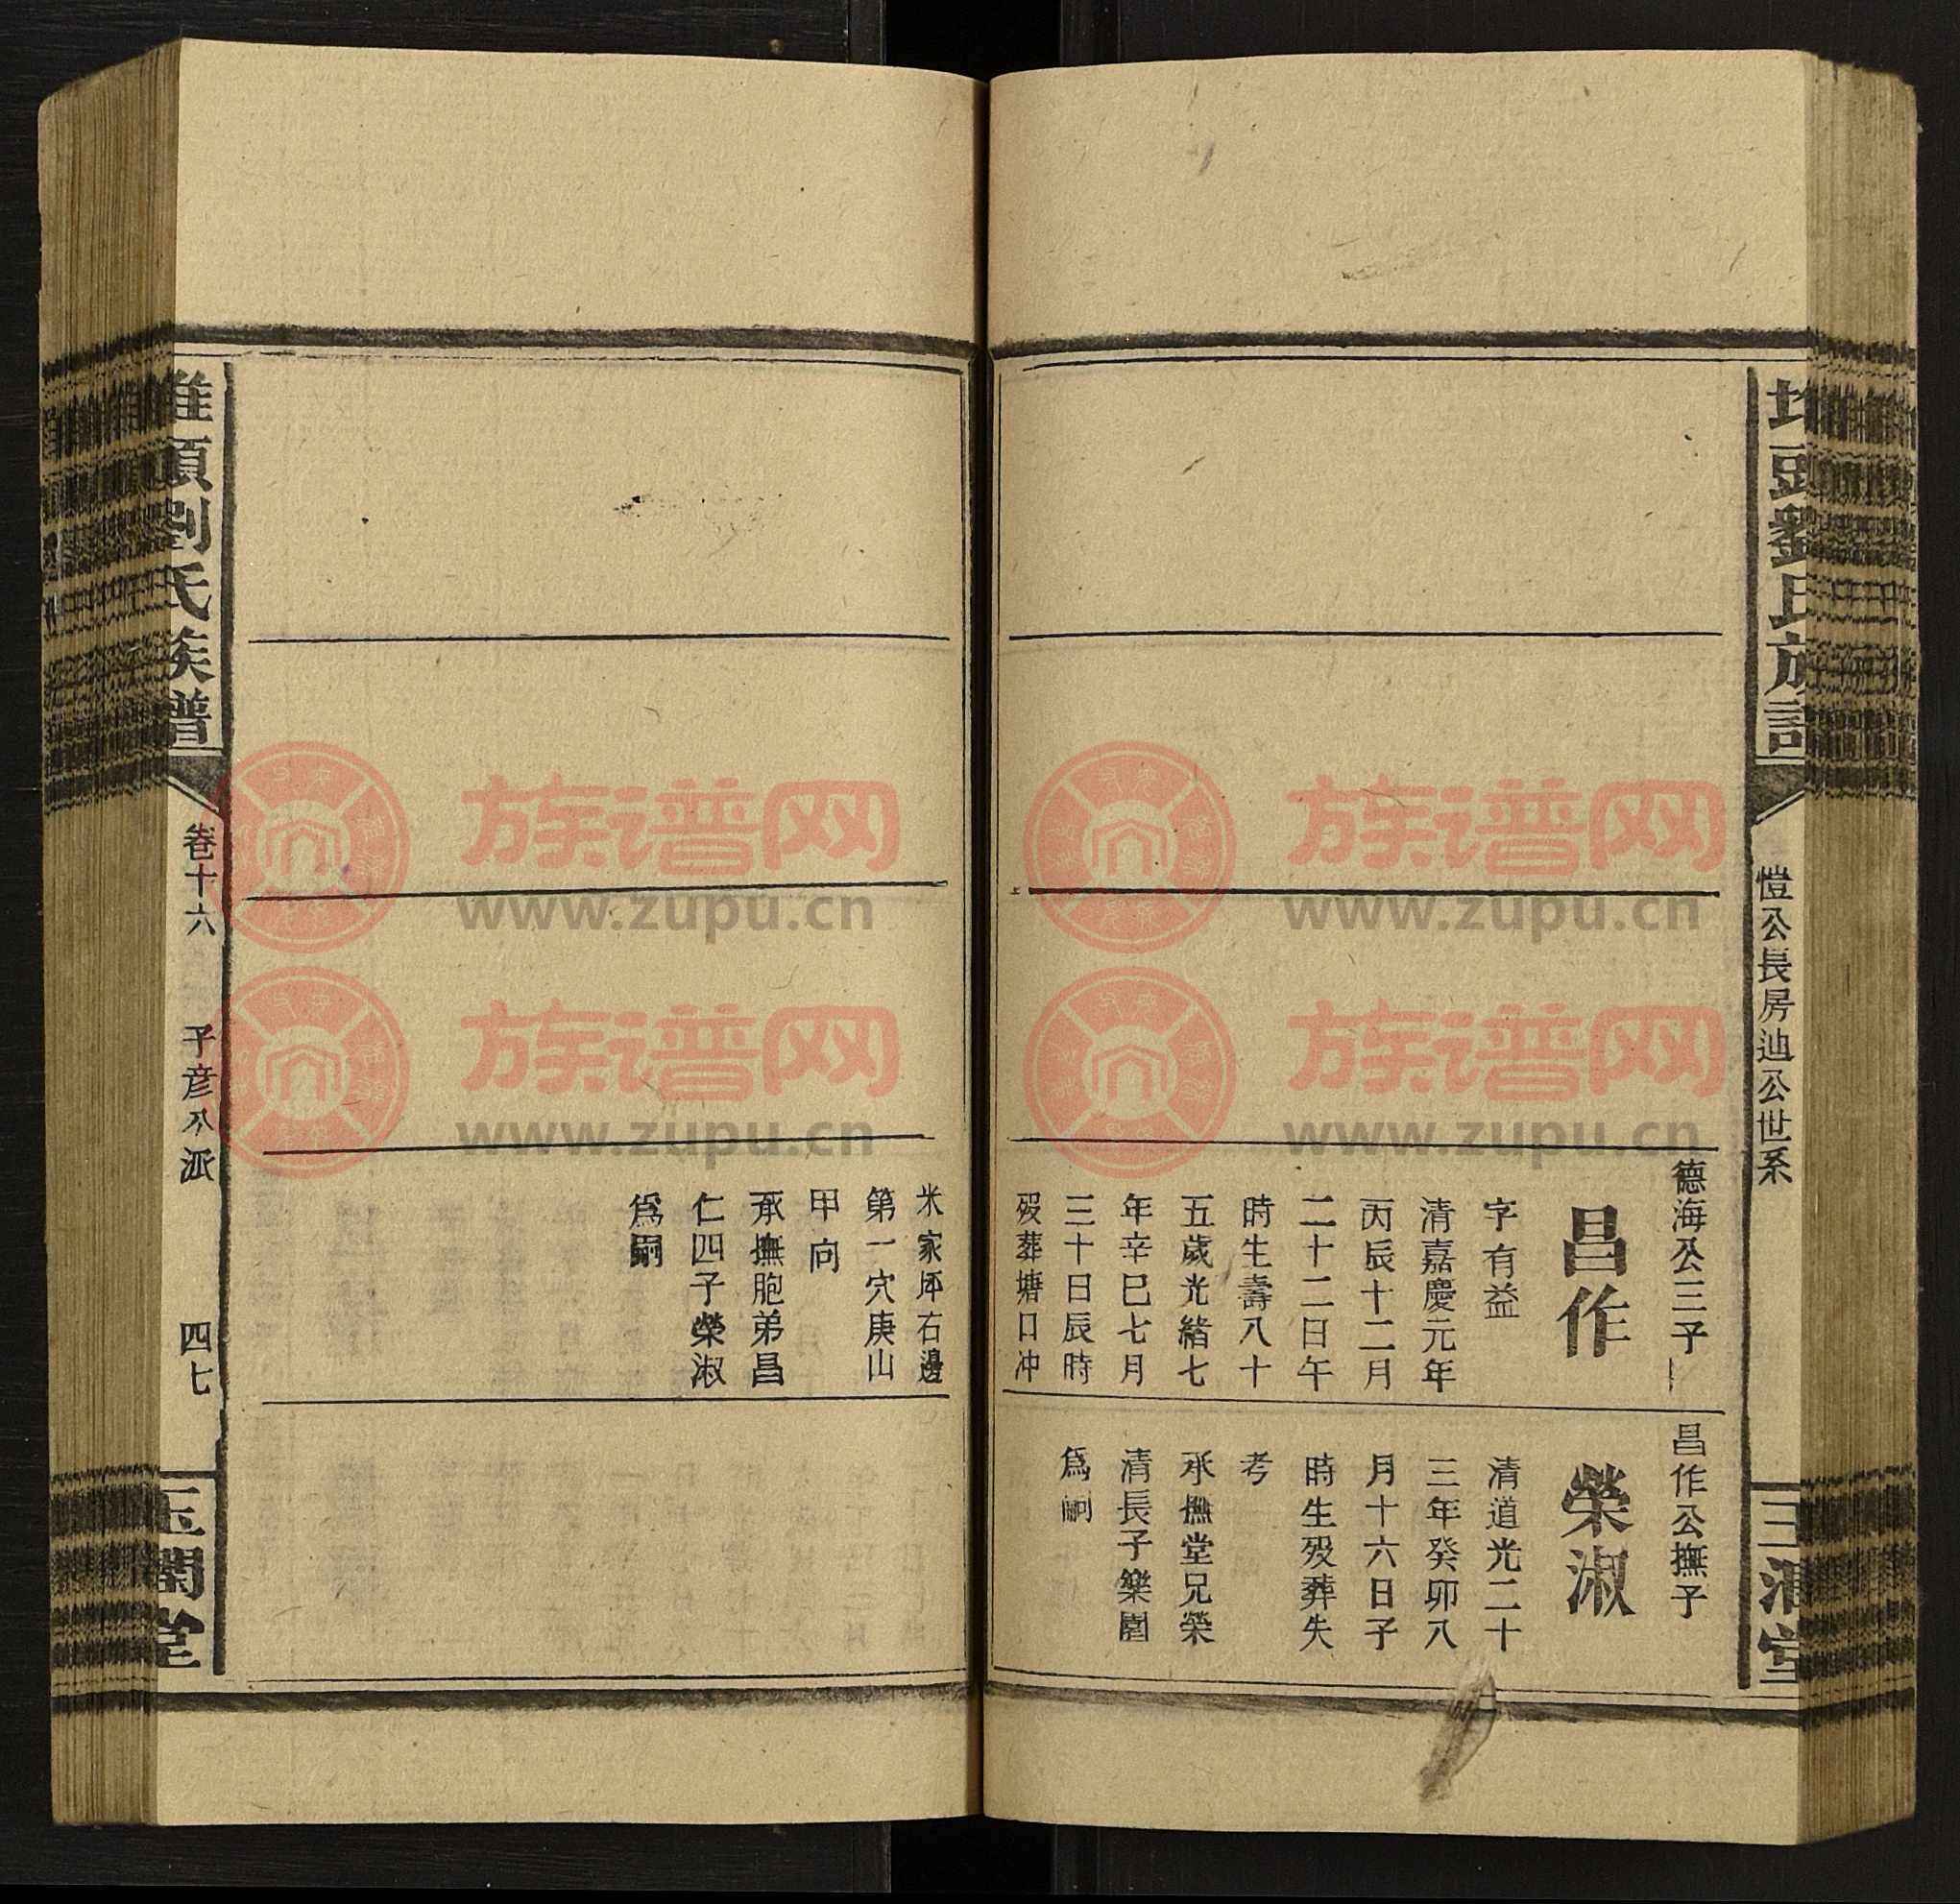 劉氏
愷公長房迪公世系
德海公三子
昌作
字有益
清嘉慶元年
丙辰十二月
二十二日午
時生壽八十
五歲光緒七
年辛巳七月
三十日辰時
歿葬塘口冲
昌作公撫子
榮淑
清道光二十
三年癸卯八
月十六日子
時生歿葬失
考
承撫堂兄榮
清長子樂園
爲嗣
米家坪右邊
第一穴庚山
甲向
承撫胞弟昌
仁四子榮淑
爲嗣
劉氏族譜
卷十六
子彥公派
四七
堂
族谱网
www.zupu.cn
族谱网
www.zupu.cn
族谱网
www.zupu.cn
族谱网
www.zupu.cn